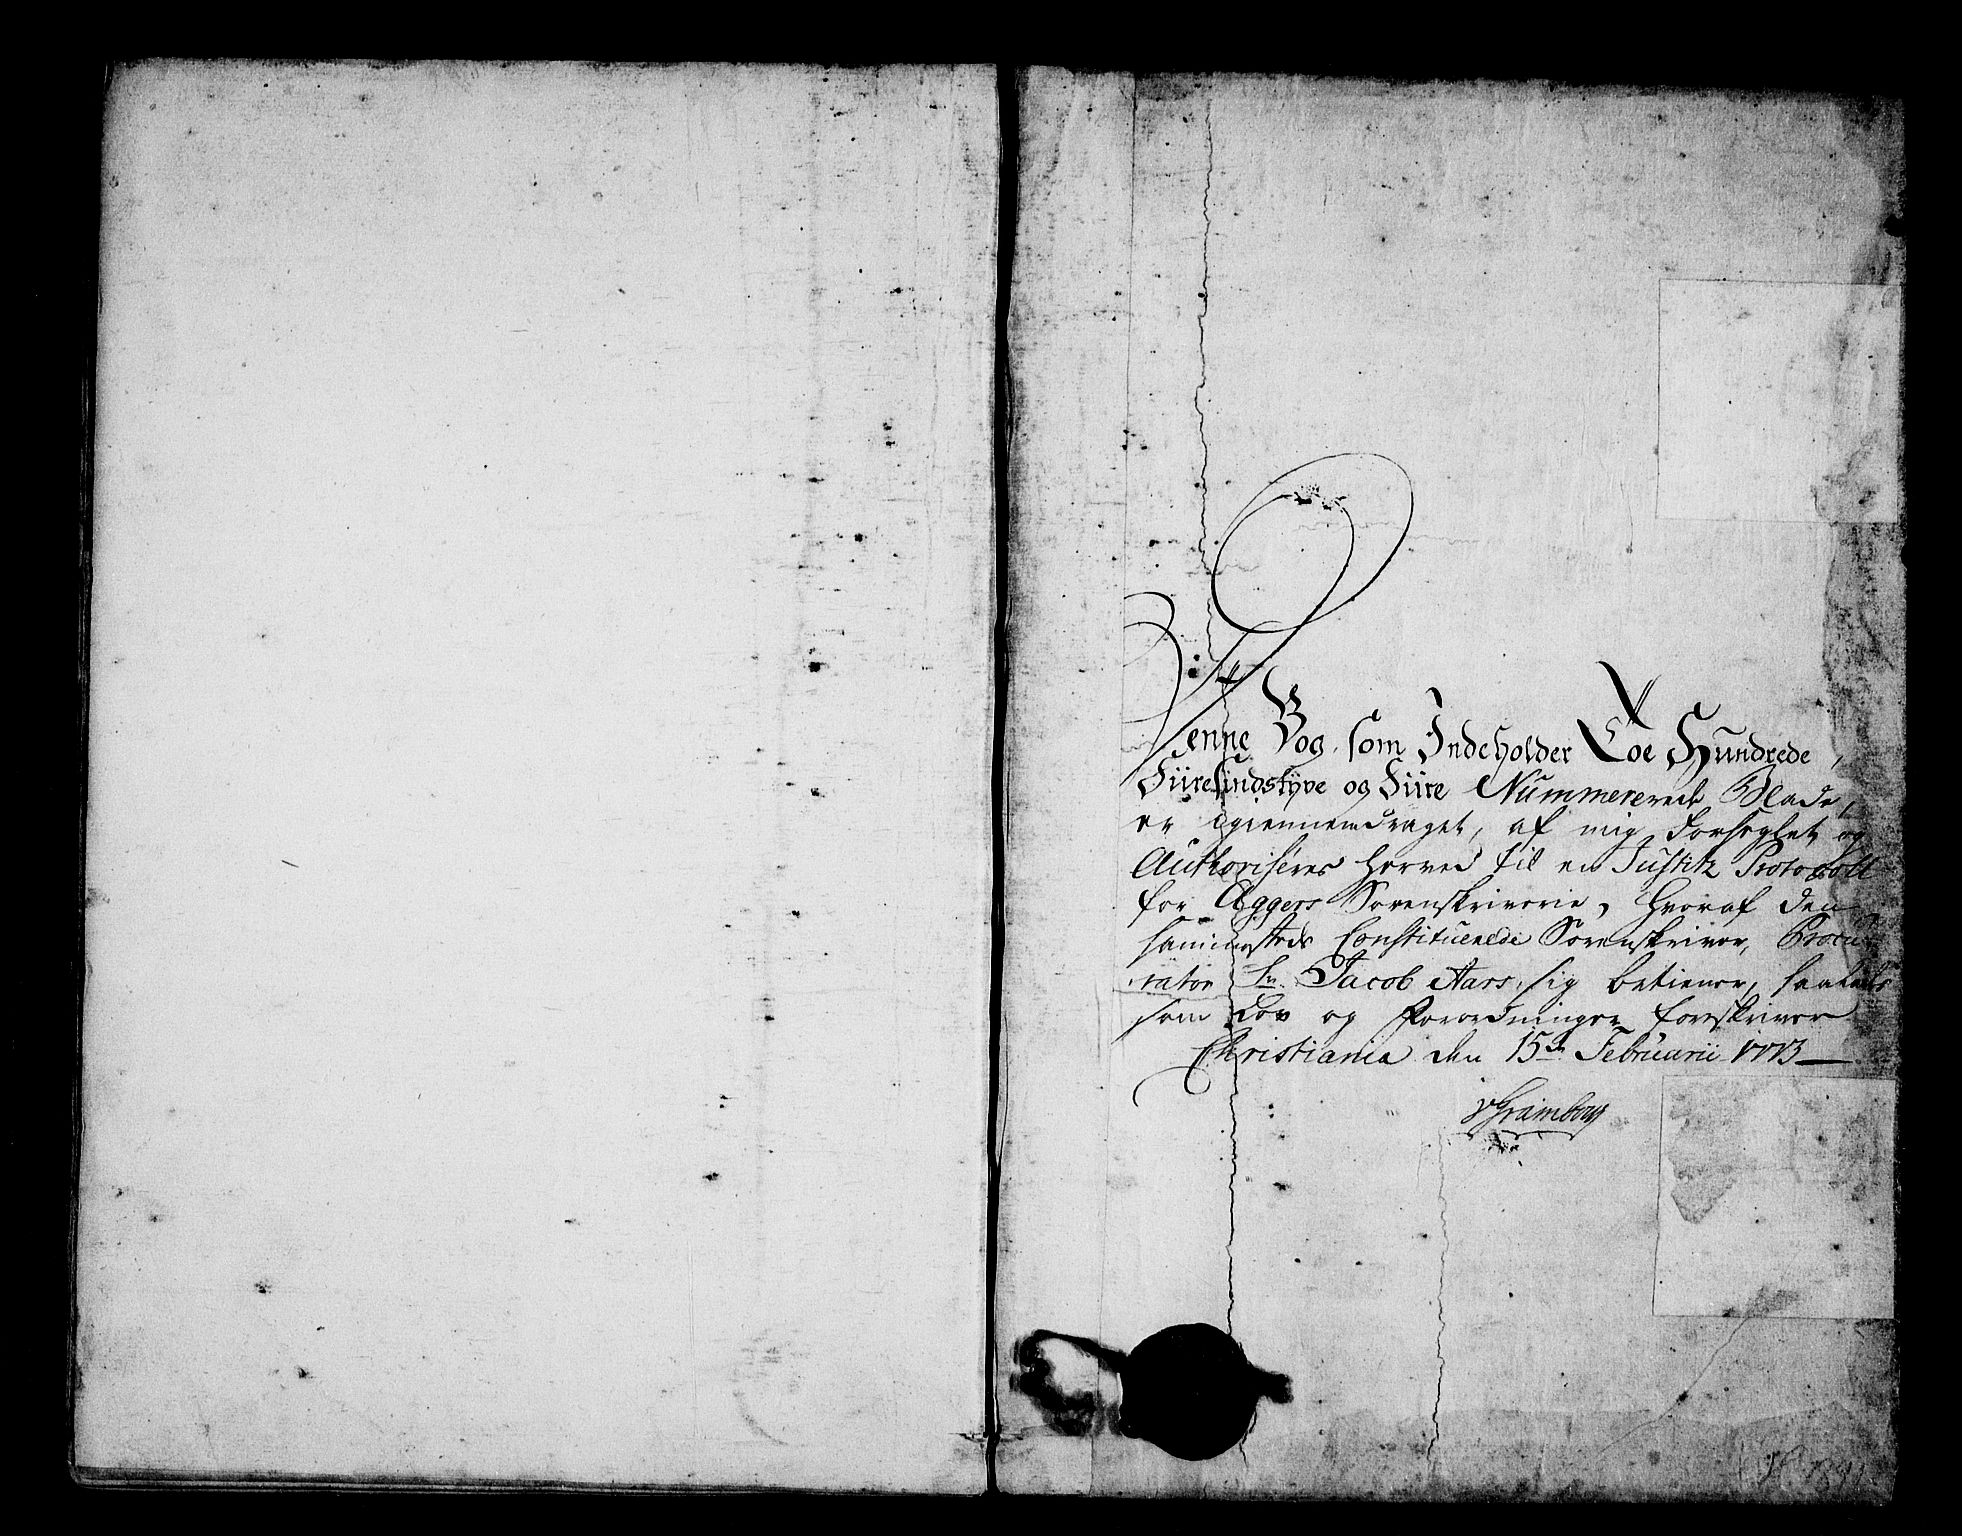 Denne Bog, som Indeholder Toe Hundrede,
Fiiresindstÿve og Fiire Nummererede Blade,
er igiennemdraget, af mig forseglet og
Authoriseres herved til en Justitz Protocoll
for Aggers Sorenskriverie, hvoraf den
sammesteds Constituerede Sorenskriver, Procu
rator Sr. Jacob Aars, sig betiener, saaledes
som Lov og Forordninger foreskriver
Christiania den 15de Februarii 1773